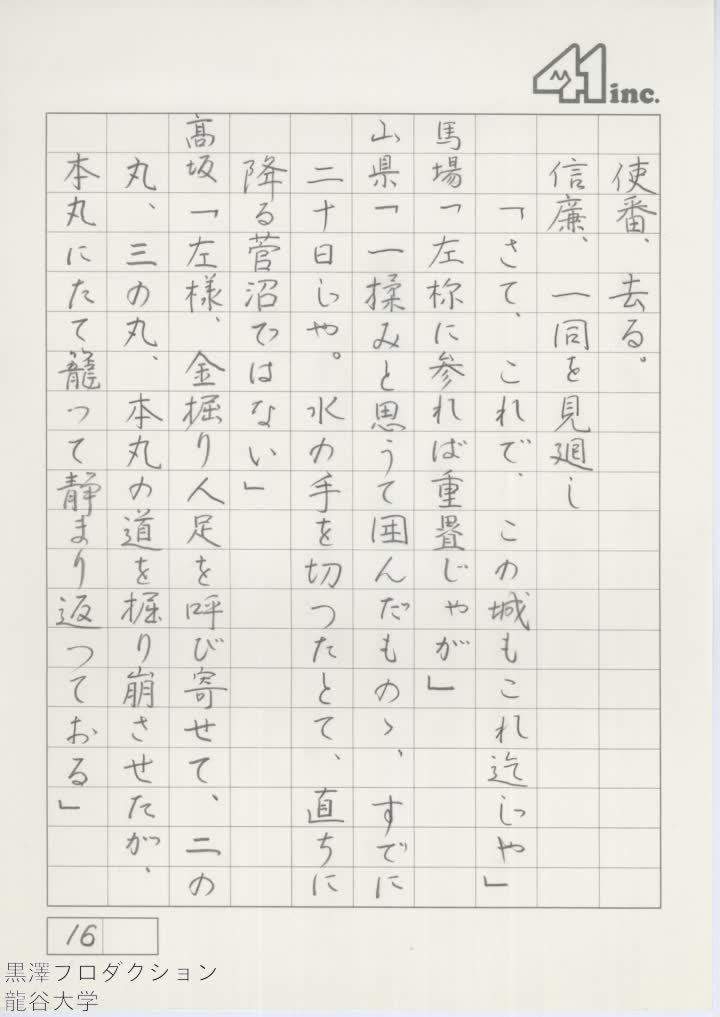 41 inc.
使番、去る。
信廉、一同を見廻し
「さて、これで、この城もこれ迄じや」
馬場「左様に参れば重畳じゃが」
山県「一揉みと思うて囲んだものゝ、すでに
二十日じや。水の手を切つたとて、直ちに
降る菅沼ではない」
高坂「左様、金掘り人足を呼び寄せて、二の
丸、三の丸、本丸の道を掘り崩させたが、
本丸にたて籠つて静まり返つておる」
16
黒澤プロダクション
龍谷大学